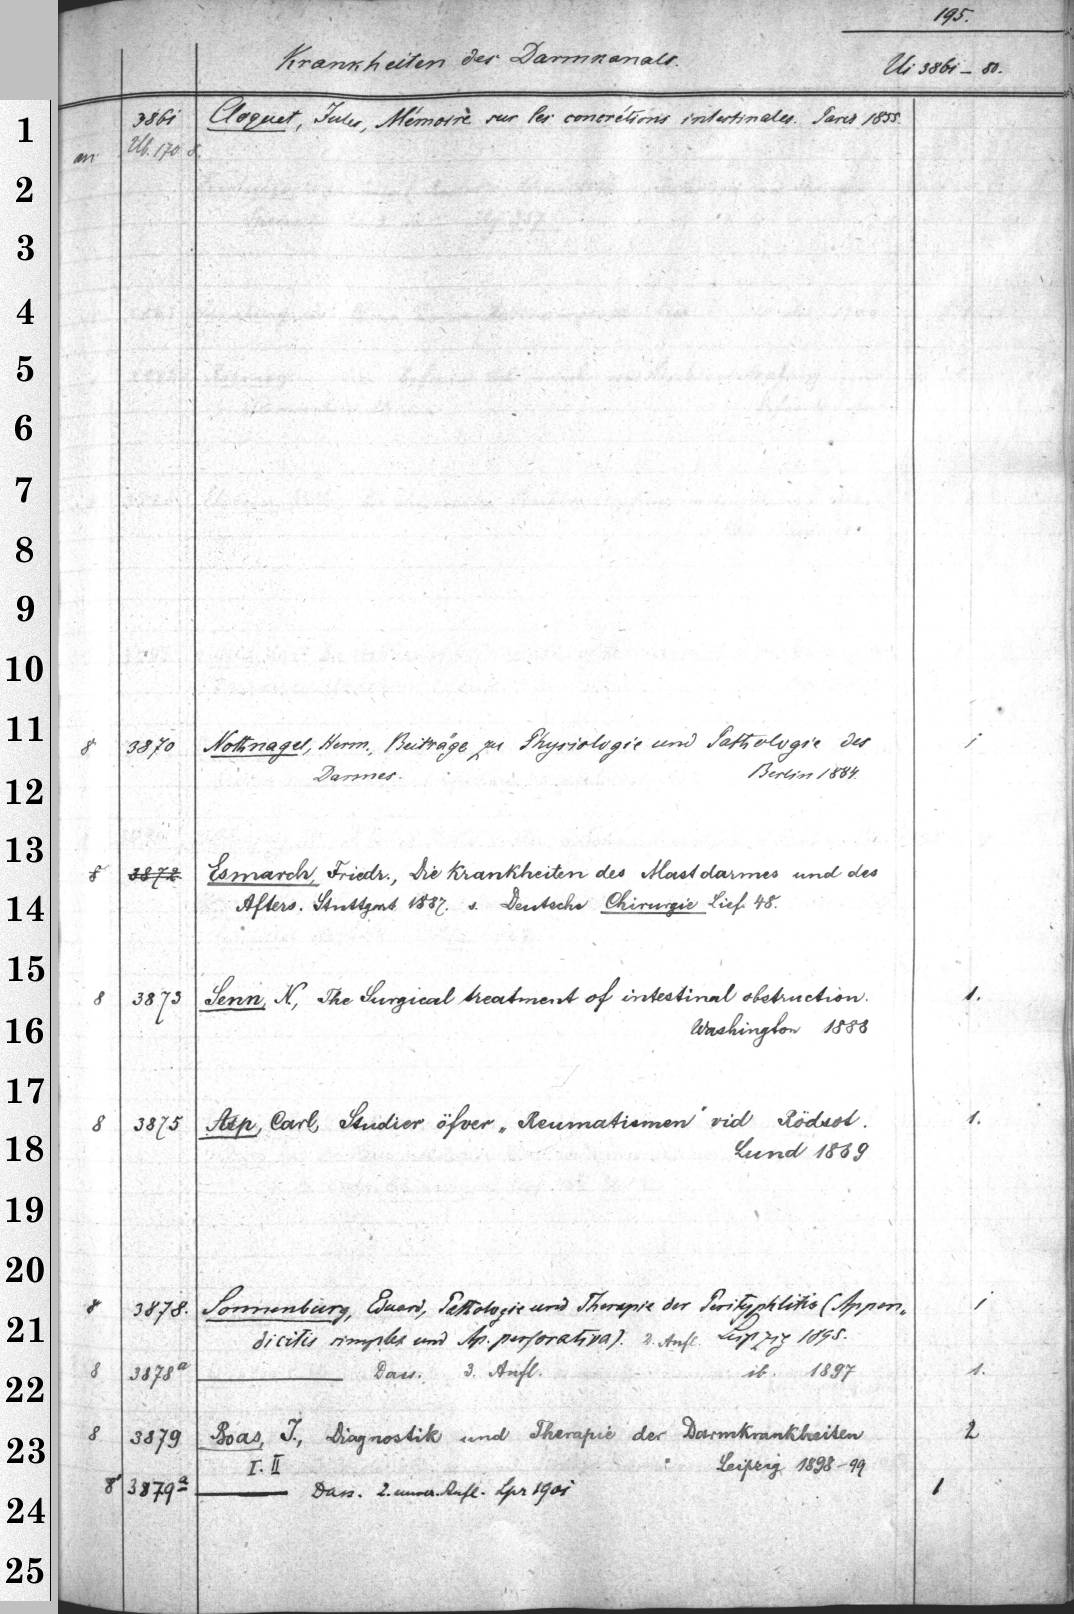 195.
Krankheiten des Darmkanals. Ui 3861-80.
1 3861 Cloquet, Jules, Mémoire sur les concrétions intestinales. Paris 1855.
an Ub. 170 8.
2
3
4
5
6
7
8
9
10
11 8 3870 Nothnagel, Herm., Beiträge zu Physiologie und Pathologie des 1
12 Darmes. Berlin 1884.
13 8 3872 Esmarch, Friedr., Die Krankheiten des Mastdarmes und des
14 Afters. Stuttgart 1887. s. Deutsche Chirurgie Lief. 48.
15 8 3873 Senn, N., The Surgical treatment of intestinal obstruction. 1.
16 Washington 1888
17 8 3875 Asp, Carl, Studier öfver „Reumatismen" vid Rödsot. 1.
18 Lund 1869
19
20 8 3878. Sonnenburg, Eduard, Pathologie und Therapie der Perityphlitis (Appen-
21 dicitis simplex und Ap. perforativa). 2. Aufl. Leipzig 1895. 1
22 8 3878a Dass. 3. Aufl. ib. 1897 1.
8 3879 Boas, I., Diagnostik und Therapie der Darmkrankheiten 2
23 I. II Leipzig 1898-99
24 8 3879a Dass. 2. unver. Aufl. Lpz 1901 1
25